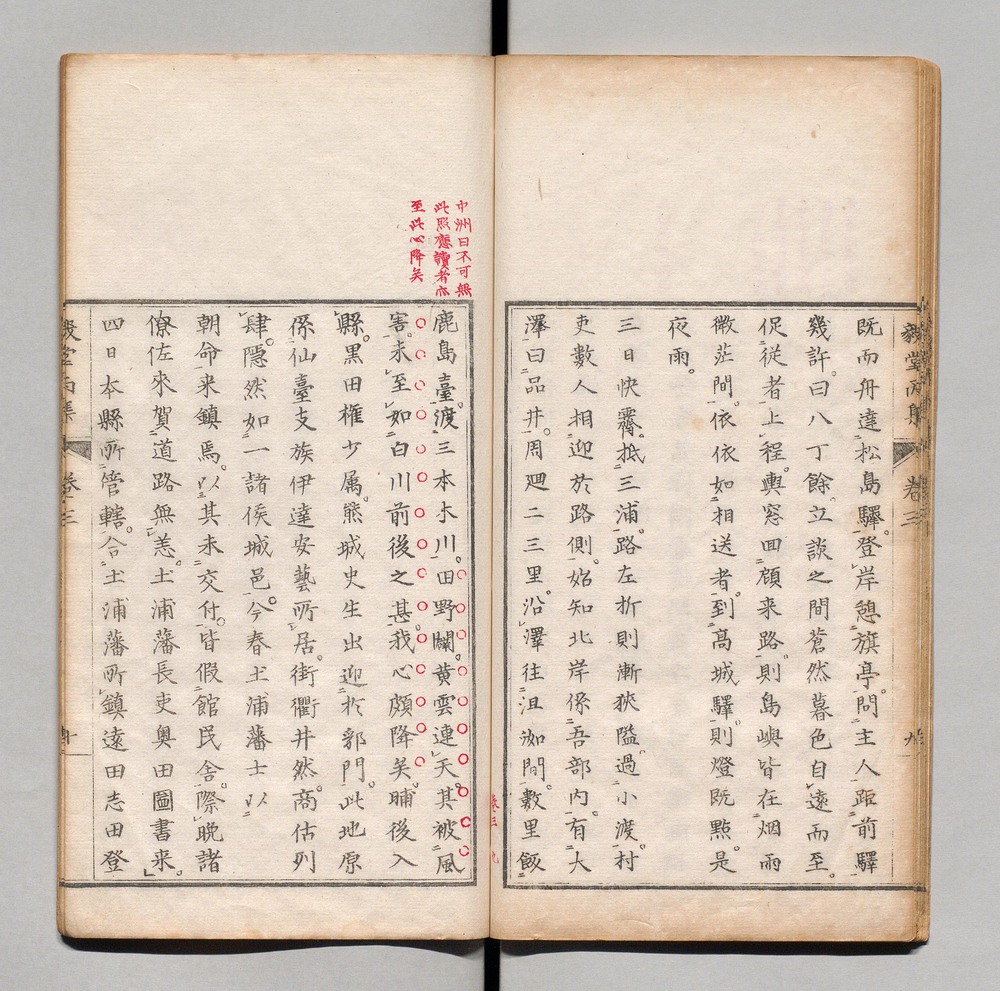 既而舟達松島驛。登岸憩旗亭。問主人距前驛
幾許。曰八丁餘。立談之間蒼然暮色自遠而至。
促從者上程。輿窓回顧来路。則島嶼皆在烟雨
微茫間。依依如相送者。到高城驛。則燈既點。是
夜雨。
三日快霽。抵三浦。路左折則漸狹隘。過小渡。村
吏數人相迎於路側。始知北岸係吾部内。有大
澤。曰品井。周廻二三里。沿澤往沮洳間。數里飯
毅堂丙集
卷三
九
中洲曰不可無
此照應讀者亦
至此心降矣
鹿島臺。渡三本木川。田野闢。黄雲連天。其被風
害。未至如白川前後之甚。我心頗降矣。晡後入
縣。黒田権少属。熊城史生出迎於郭門。此地原
係仙臺支族伊達安藝所居。街衢井然。高估列
肆。隱然如一諸侯城邑。今春土浦藩士以
朝命来鎮焉。以其未交付。皆假館民舍。際晩諸
僚佐來賀道路無恙。土浦藩長吏奥田圖書来。
四日本縣所管轄。合土浦藩所鎮遠田志田登
毅堂丙集
卷三
十